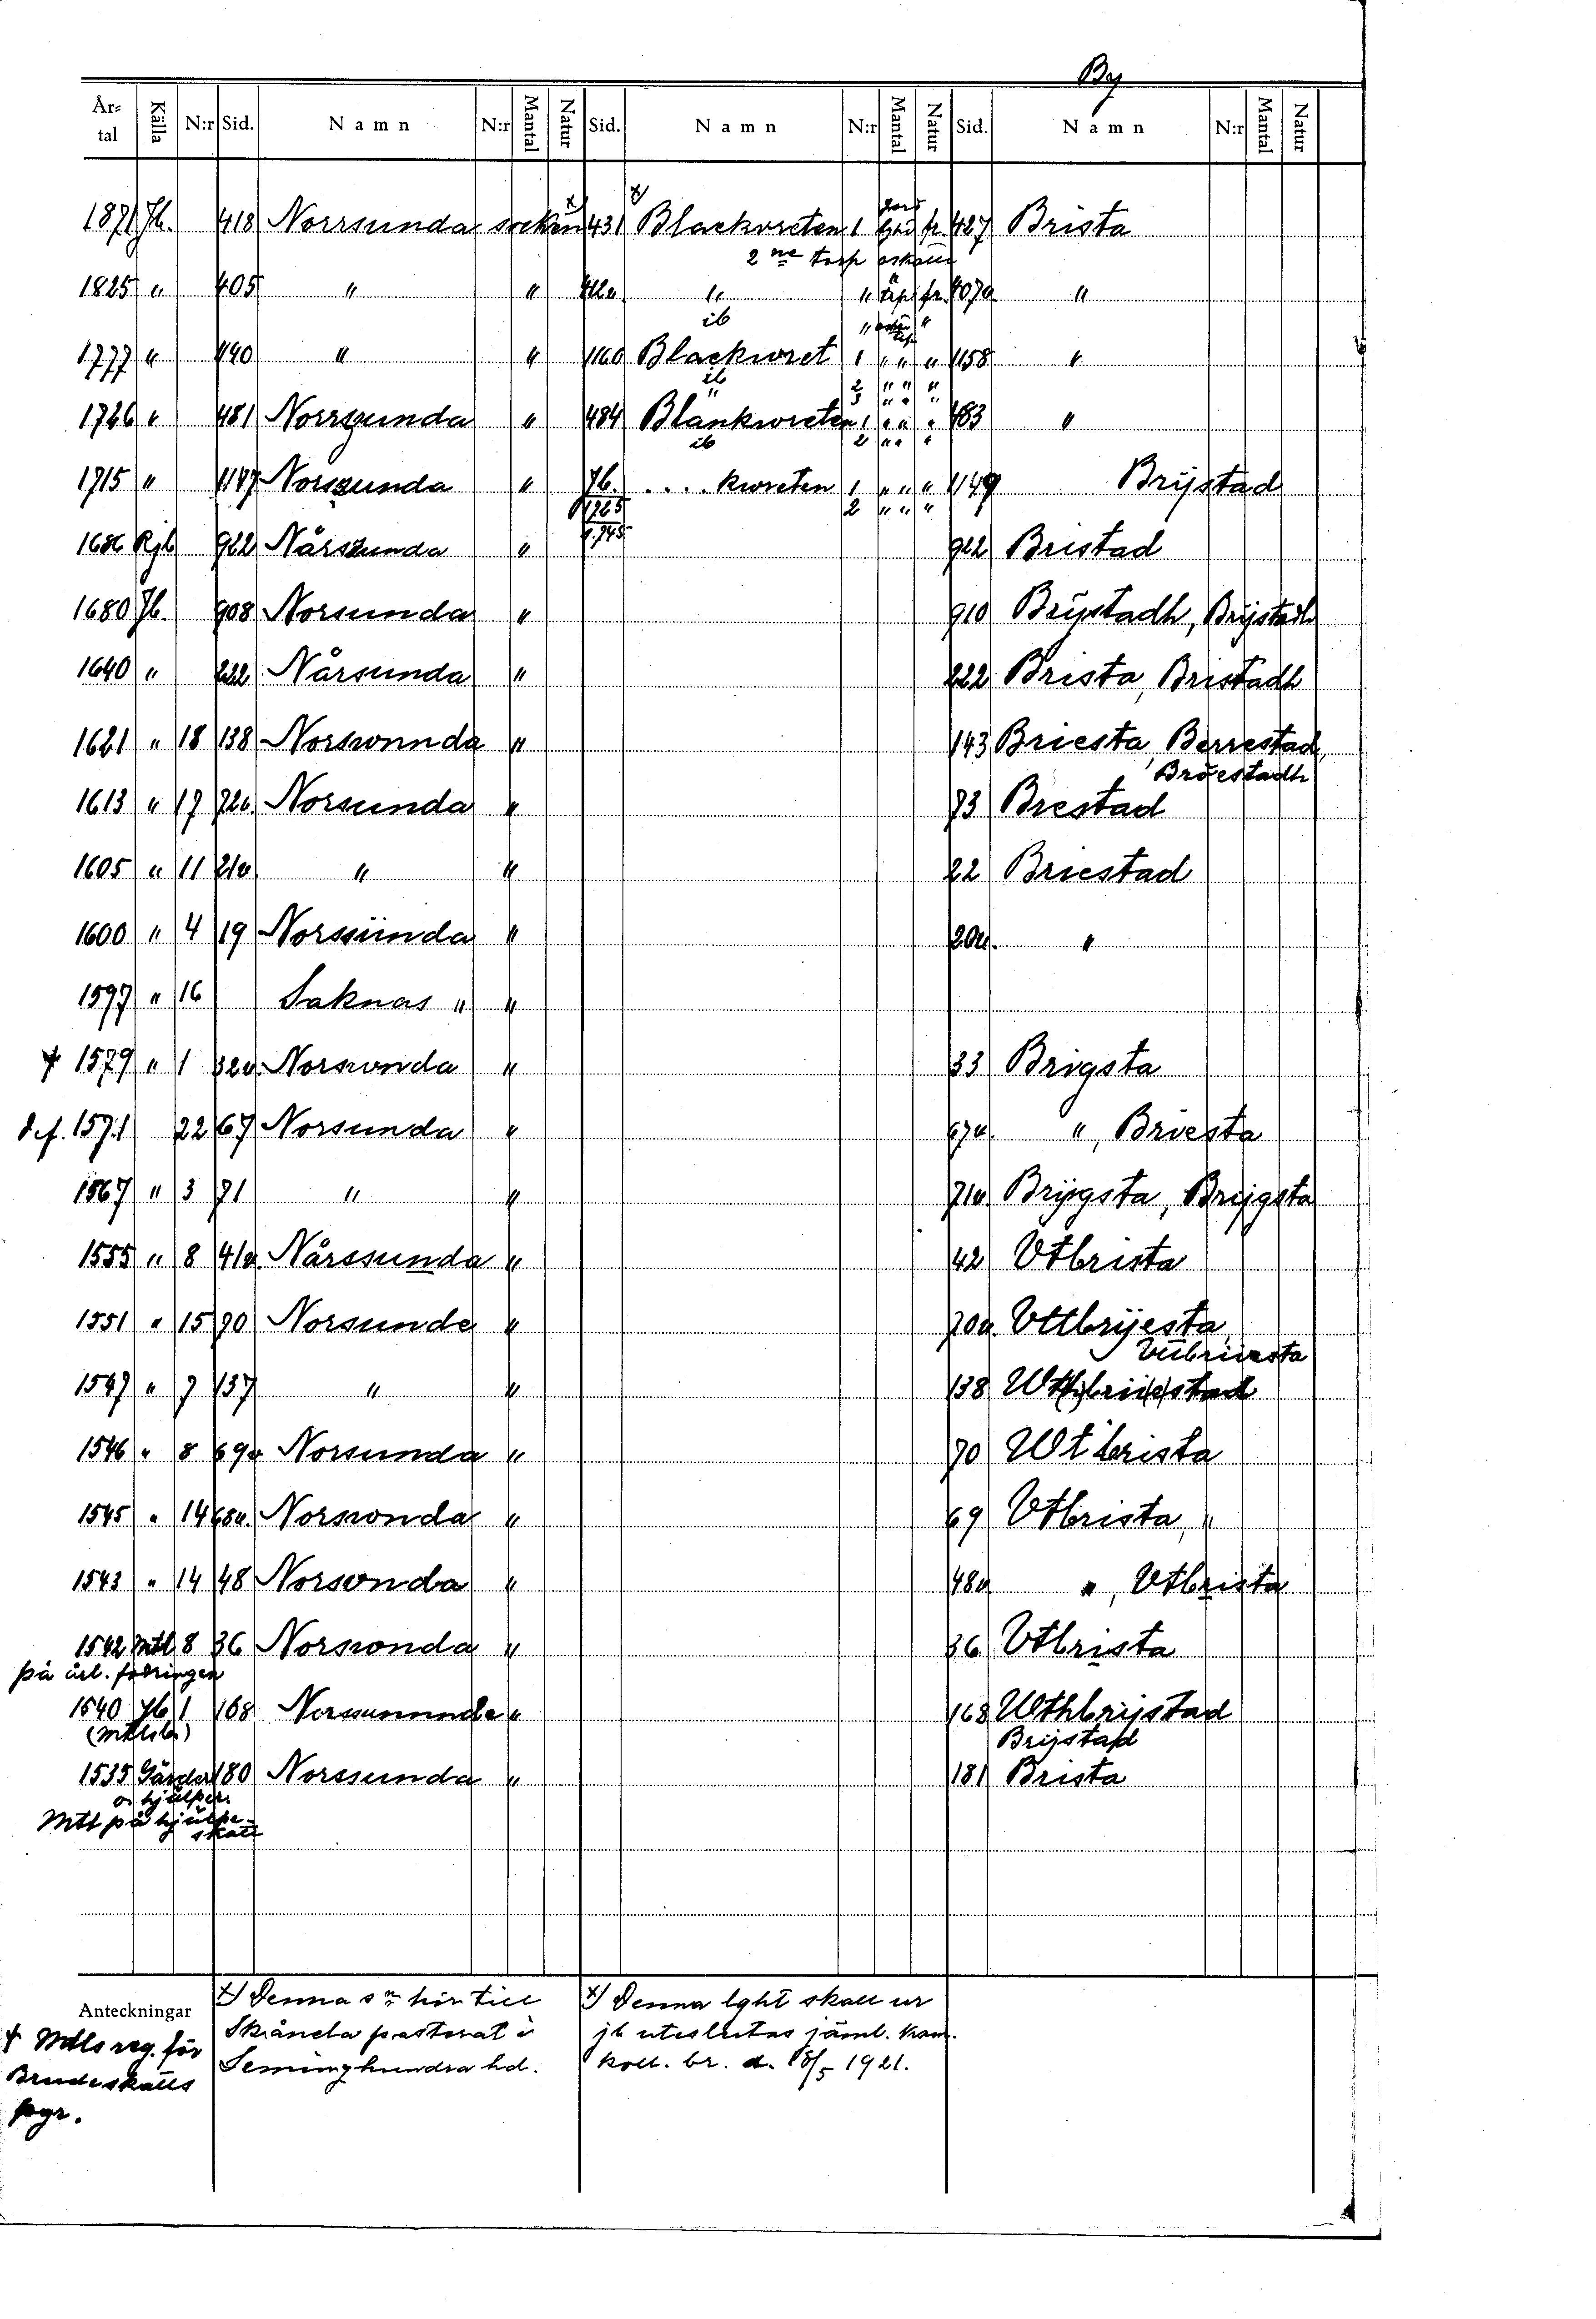 By
År-tal Källa N:r Sid. Namn N:r Mantal Natur Sid. Namn N:r Mantal Natur Sid. Namn N:r Mantal Natur
1871 Jb. 418 Norrsunda socken x) 431 x) Blackvreten 1 fr. 427 Brista
2 ne torp oskatt
1825 " 405 " " 412a " " fr. 407a "
ib " "
1777 " 1140 " " 1160 Blackwret 1 " " " 1158 "
ib 2 " " "
" 3 " " "
1746 " 481 Norrsunda " 484 Blankwreten 1 " " " 483 "
ib 2 " " "
1715 " 1147 Norszunda " Jb. .... kwreten 1 " " " 1149 Brijstad
1725 2 " " "
1686 Rjb 922 Nårszunda " 1745 922 Bristad
1680 Jb. 908 Norsunda " 910 Brijstadh, Brijstadh
1640 " 222 Nårsunda " 222 Brista, Bristadh
1621 " 18 138 Norswnnda " 143 Briesta, Berrestad,
Bröestadh
1613 " 17 72a Norsunda " 73 Brestad
1605 " 11 21a " " 22 Briestad
1600 " 4 19 Norssünda " 20a. "
1597 " 16 Saknas " "
+ 1579 " 1 32a Norswnda " 33 Brigsta
def. 1571 22 67 Norsunda " 67a " , Briesta
1567 " 3 71 " " 71a. Brijgsta, Brijgsta
1555 " 8 41a Nårssunda " 42 Vtbrista
1551 " 15 70 Norsunde " 70a. Vttbrijesta,
1547 " 7 137 " " 138
1546 " 8 69a Norsunda " 70 Wtbrista
1545 " 14 68a. Norswnda " 69 Vtbrista, "
1543 " 14 48 Norsvnda " 48a " , Vtbrista
1542 Mtl 8 36 Norswnda " 36 Vtbrista
på ärl. fodringen
1540 Jb 1 168 Norssunnda " 168 Wthbrijstad
(Mtlsb.) Brijstad
1535 Gärder 180 Norssunda " 181 Brista
o hjälper.
Mtl på hjälpe-
skatt
Anteckningar
x) Denna sn hör till
Skånela pastorat i
Seminghundra hd.
x) Denna lght skall ur
jb uteslutas jäml. kam.
koll. br. d. 18/5 1921.
+ Mtls reg. för
Brudeskatts
pgr.